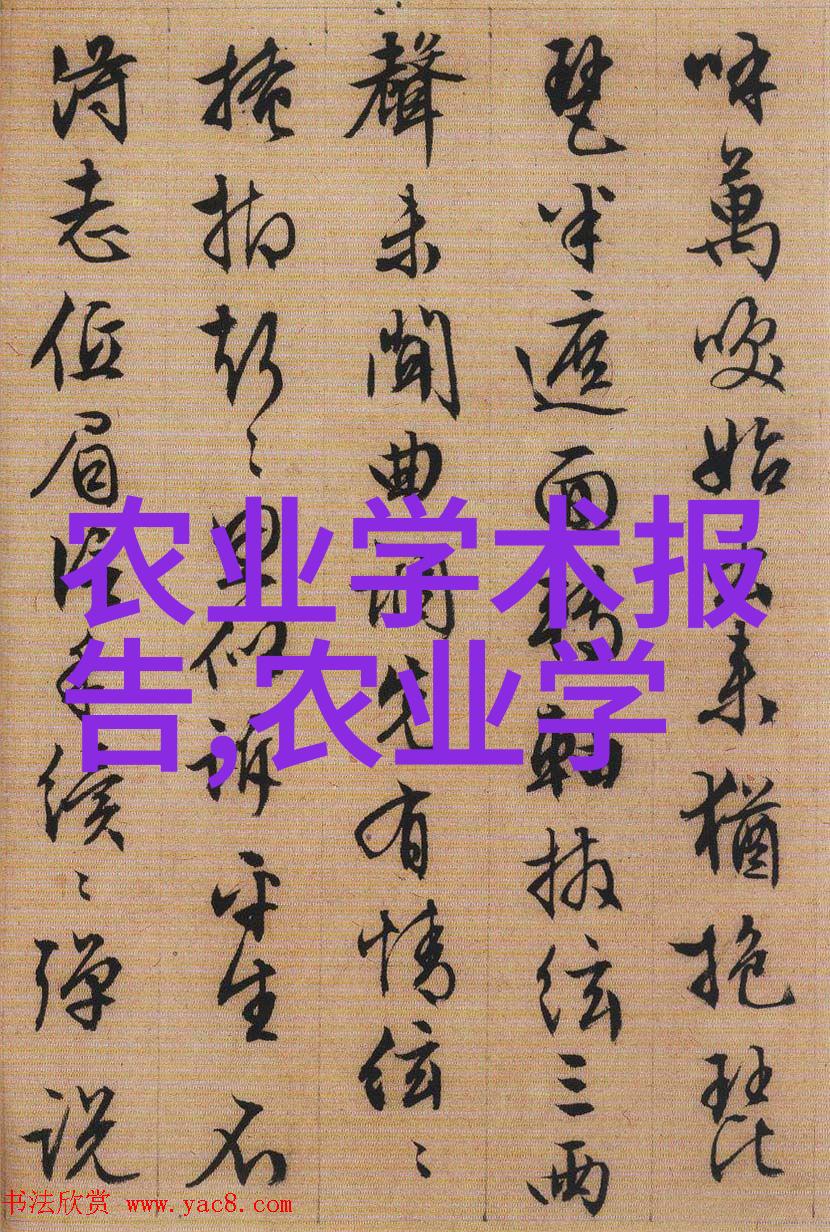 呼萬唤始出来猶抱琵
琶半遮面轉軸撥絃三兩
聲未聞曲調先有情絃〻
掩抑聲〻思似訴平生不
得志低眉信手續〻彈説
农业学术报
告,农业学
书法欣赏 www.yac8.com